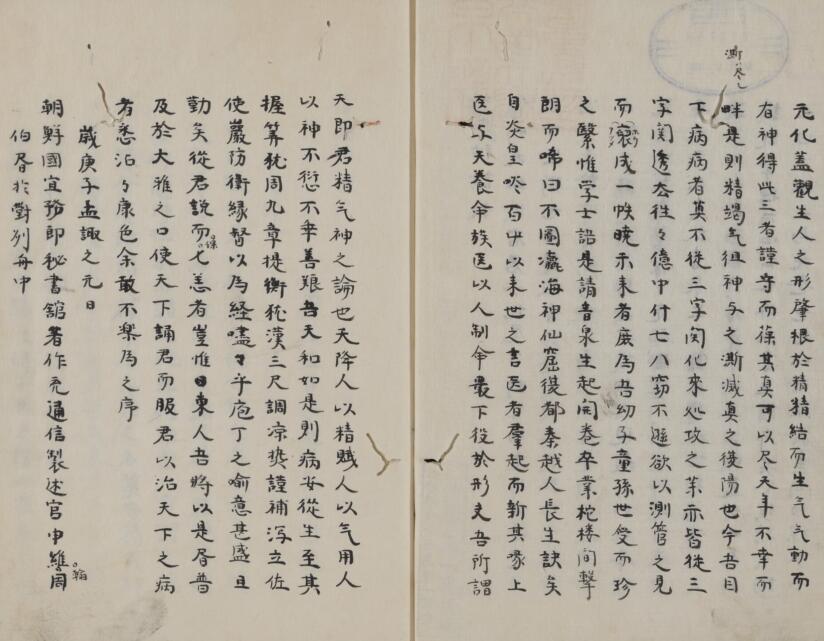 元化盖觀生人之形肇根於精精結而生气气動而
有神得此三者謹守而葆其真可以尽天年不幸而
畔是則精竭气徂神与之澌滅真之復陽也今吾目
下病病者莫不從三字関化來処攻之某亦皆從三
字関透去往々億中什七八窃不遜欲以測管之見
而裒成一帙暁示来者庶為吾幼子童孫世受而珍
之繄惟学士語是請青泉生起開卷卒業柁楼间擊
朗而唏曰不圖瀛海神仙窟復都秦越人長生訣矣
自炎皇咜百屮以来世之言医者羣起而新其喙上
医与天養命族医以人制命最下役於形夫吾所謂
天即君精气神之論也天降人以精賦人以气用人
以神不愆不幸善飱吾天和如是則病安從生至其
握筭犹周九章提衡犹漢三尺調凉㷫謹補泻立佐
使嚴防衛縁督以為経嘻々乎庖丁之喻意甚盛且
勤矣從君說而七恙者豈惟日東人吾將以是唇普
及於大雅之口使天下誦君而服君以治天下之病
者悉治々康色余敢不樂為之序
歲庚子孟諏之元日
朝鮮國宣務郎秘書舘著作充通信製述官申維周
伯唇於對列舟中
澌ハ尽也
翰